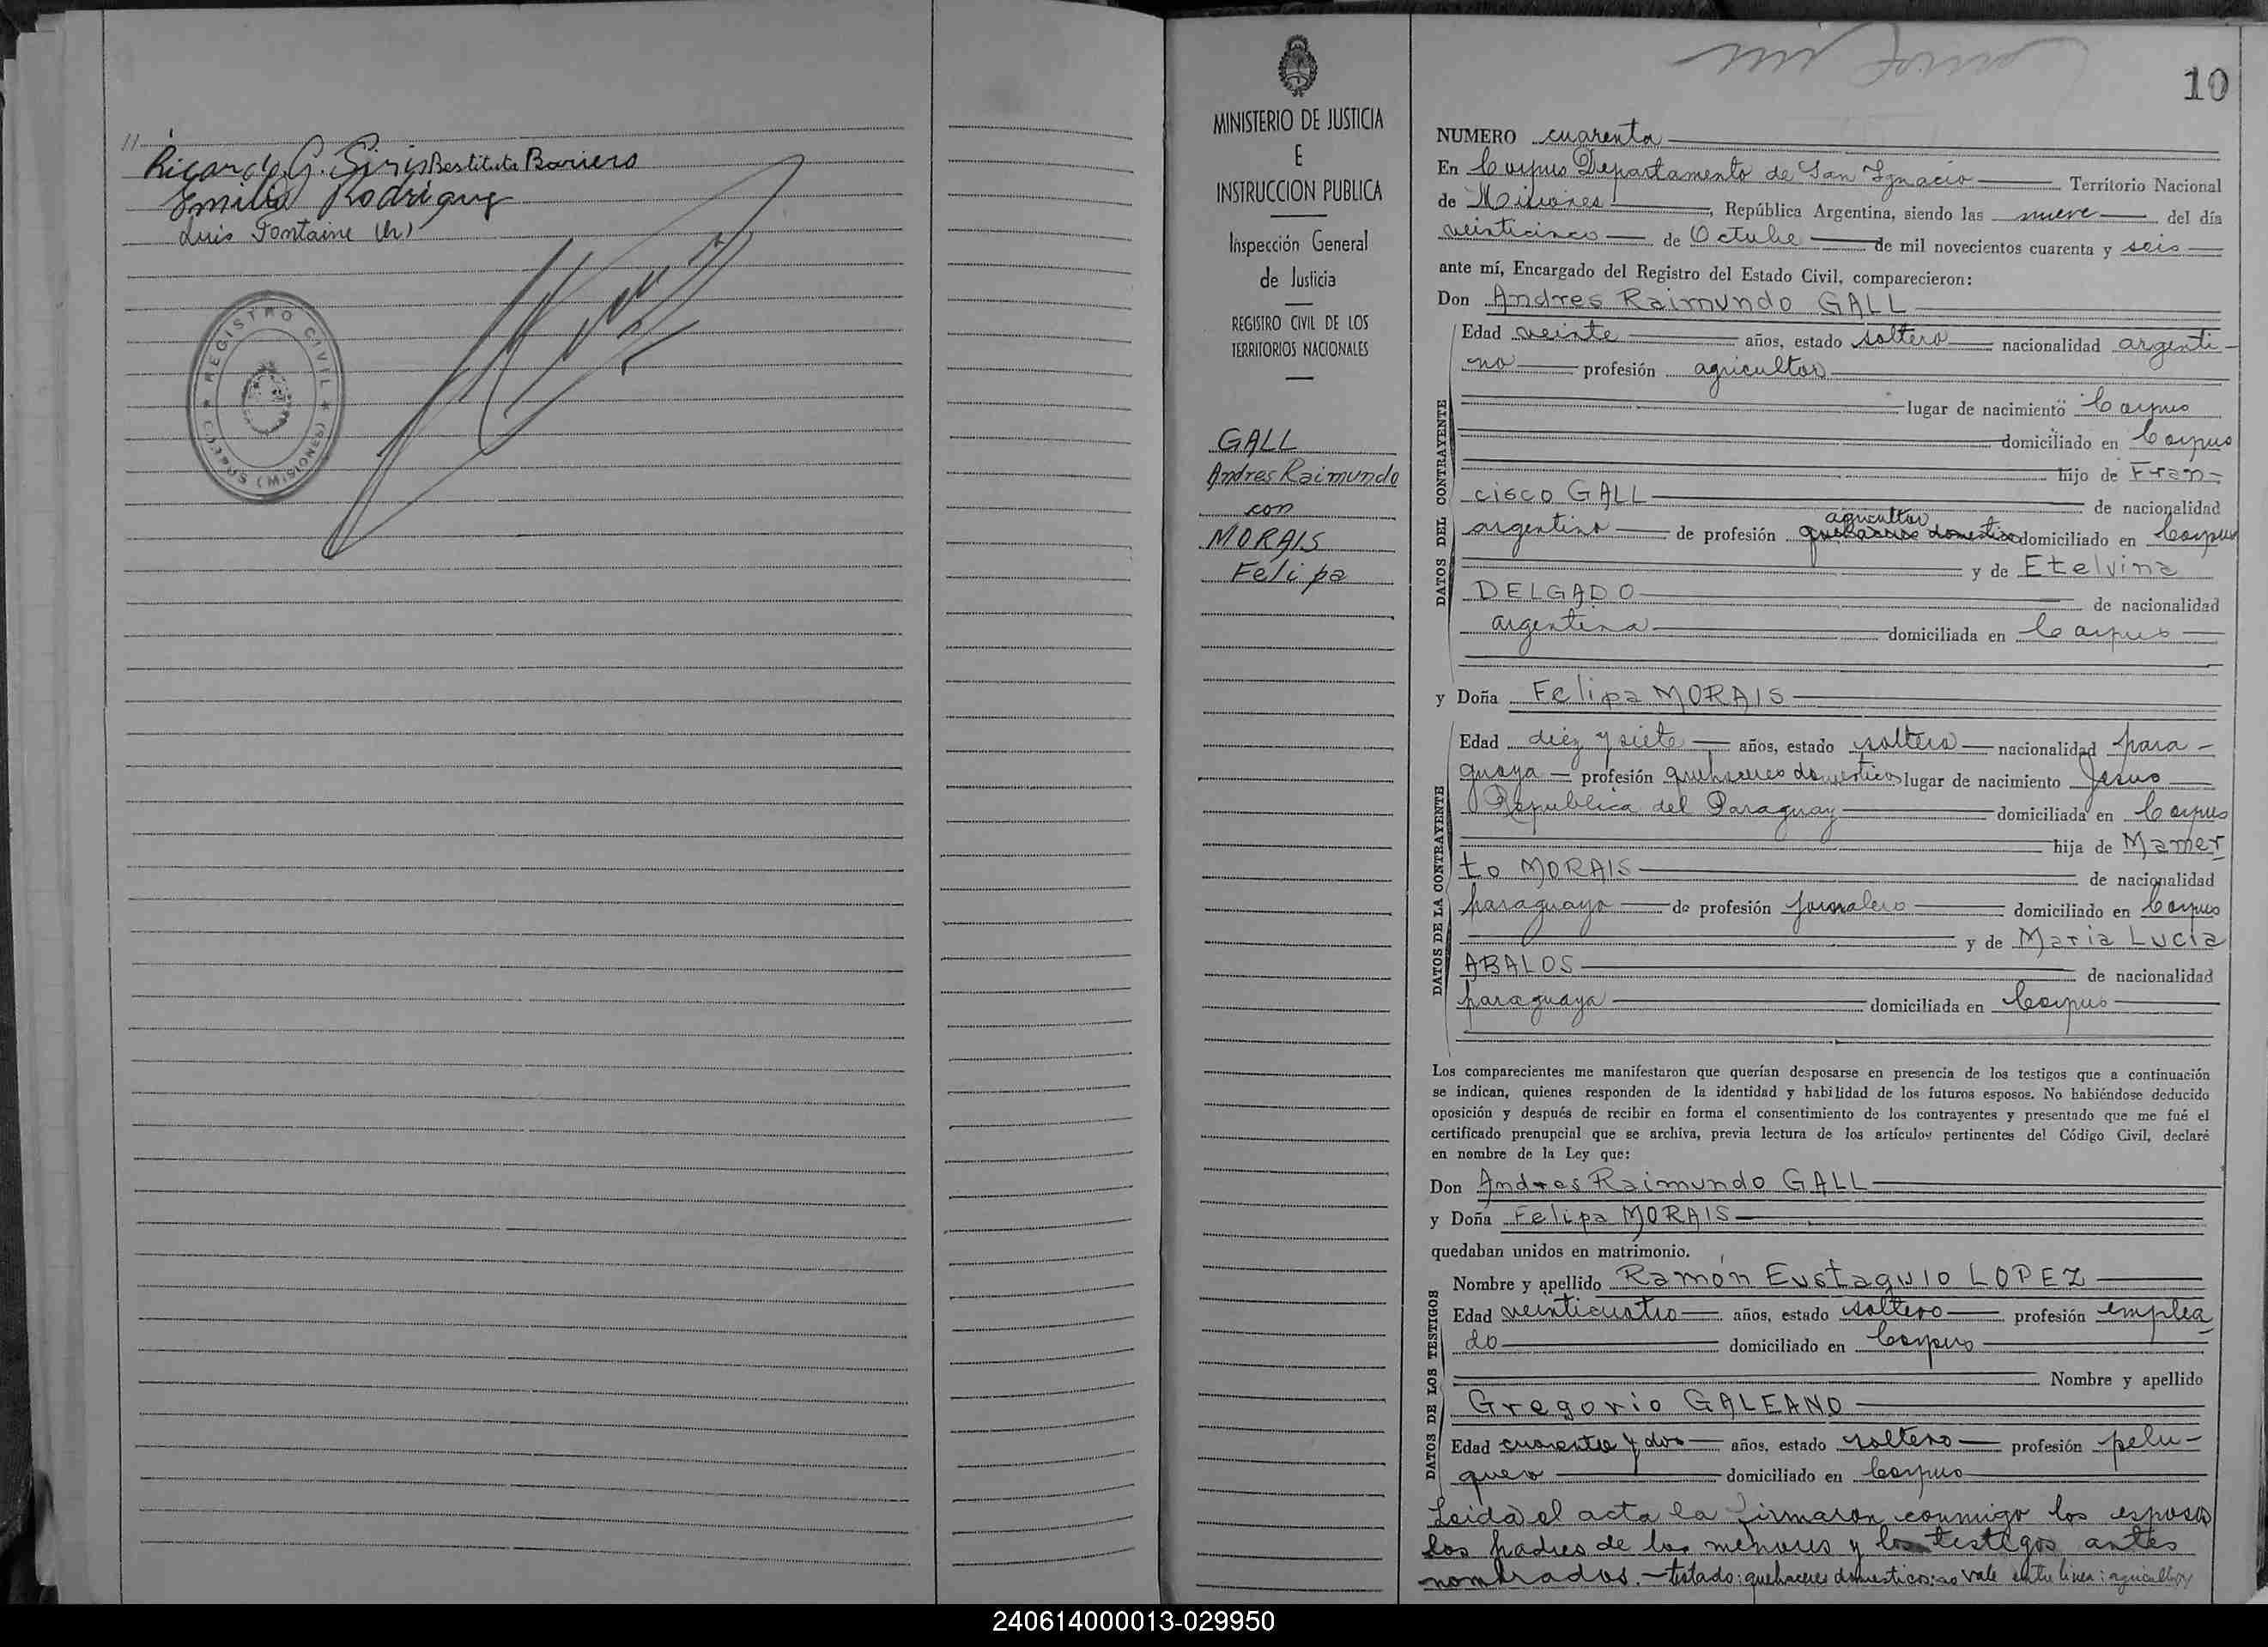 Ricardo G. Restituta Barriero
Emilio Rodriguez
Luis Fontaine (h)
REGISTRO CIVIL
CORPUS (MISIONES)
MINISTERIO DE JUSTICIA
E
INSTRUCCION PUBLICA
Inspección General
de Justicia
REGISTRO CIVIL DE LOS
TERRITORIOS NACIONALES
GALL
Andres Raimundo
con
MORAIS
Felipa
10
NUMERO cuarenta
En Corpus Departamento de San Ignacio Territorio Nacional
de Misiones, República Argentina, siendo las nueve del día
veinticinco de Octubre de mil novecientos cuarenta y seis
ante mí, Encargado del Registro del Estado Civil, comparecieron:
Don Andres Raimundo GALL
DATOS DEL CONTRAYENTE
Edad veinte años, estado soltero nacionalidad argenti-
no profesión agricultor
lugar de nacimiento Corpus
domiciliado en Corpus
hijo de Fran-
cisco GALL de nacionalidad
agricultor
argentino de profesión quehaceres domesticos domiciliado en Corpus
y de Etelvina
DELGADO de nacionalidad
argentina domiciliada en Corpus
y Doña Felipa MORAIS
DATOS DE LA CONTRAYENTE
Edad diez y siete años, estado soltera nacionalidad para-
guaya profesión quehaceres domesticos lugar de nacimiento Jesus
Republica del Paraguay domiciliada en Corpus
hija de Mamer
to MORAIS de nacionalidad
paraguayo de profesión jornalero domiciliado en Corpus
y de Maria Lucia
ABALOS de nacionalidad
paraguaya domiciliada en Corpus
Los comparecientes me manifestaron que querían desposarse en presencia de los testigos que a continuación
se indican, quienes responden de la identidad y habilidad de los futuros esposos. No habiéndose deducido
oposición y después de recibir en forma el consentimiento de los contrayentes y presentado que me fué el
certificado prenupcial que se archiva, previa lectura de los artículos pertinentes del Código Civil, declaré
en nombre de la Ley que:
Don Andres Raimundo GALL
y Doña Felipa MORAIS
quedaban unidos en matrimonio.
DATOS DE LOS TESTIGOS
Nombre y apellido Ramón Eustaquio LOPEZ
Edad veinticuatro años, estado soltero profesión emplea
do domiciliado en Corpus
Nombre y apellido
Gregorio GALEANO
Edad cuarenta y dos años, estado soltero profesión pelu-
quero domiciliado en Corpus
Leida el acta la firmaron conmigo los esposos
los padres de los menores y los testigos antes
nombrados.- testado: quehaceres domesticos: no vale entre linea: agricultor
240614000013-029950